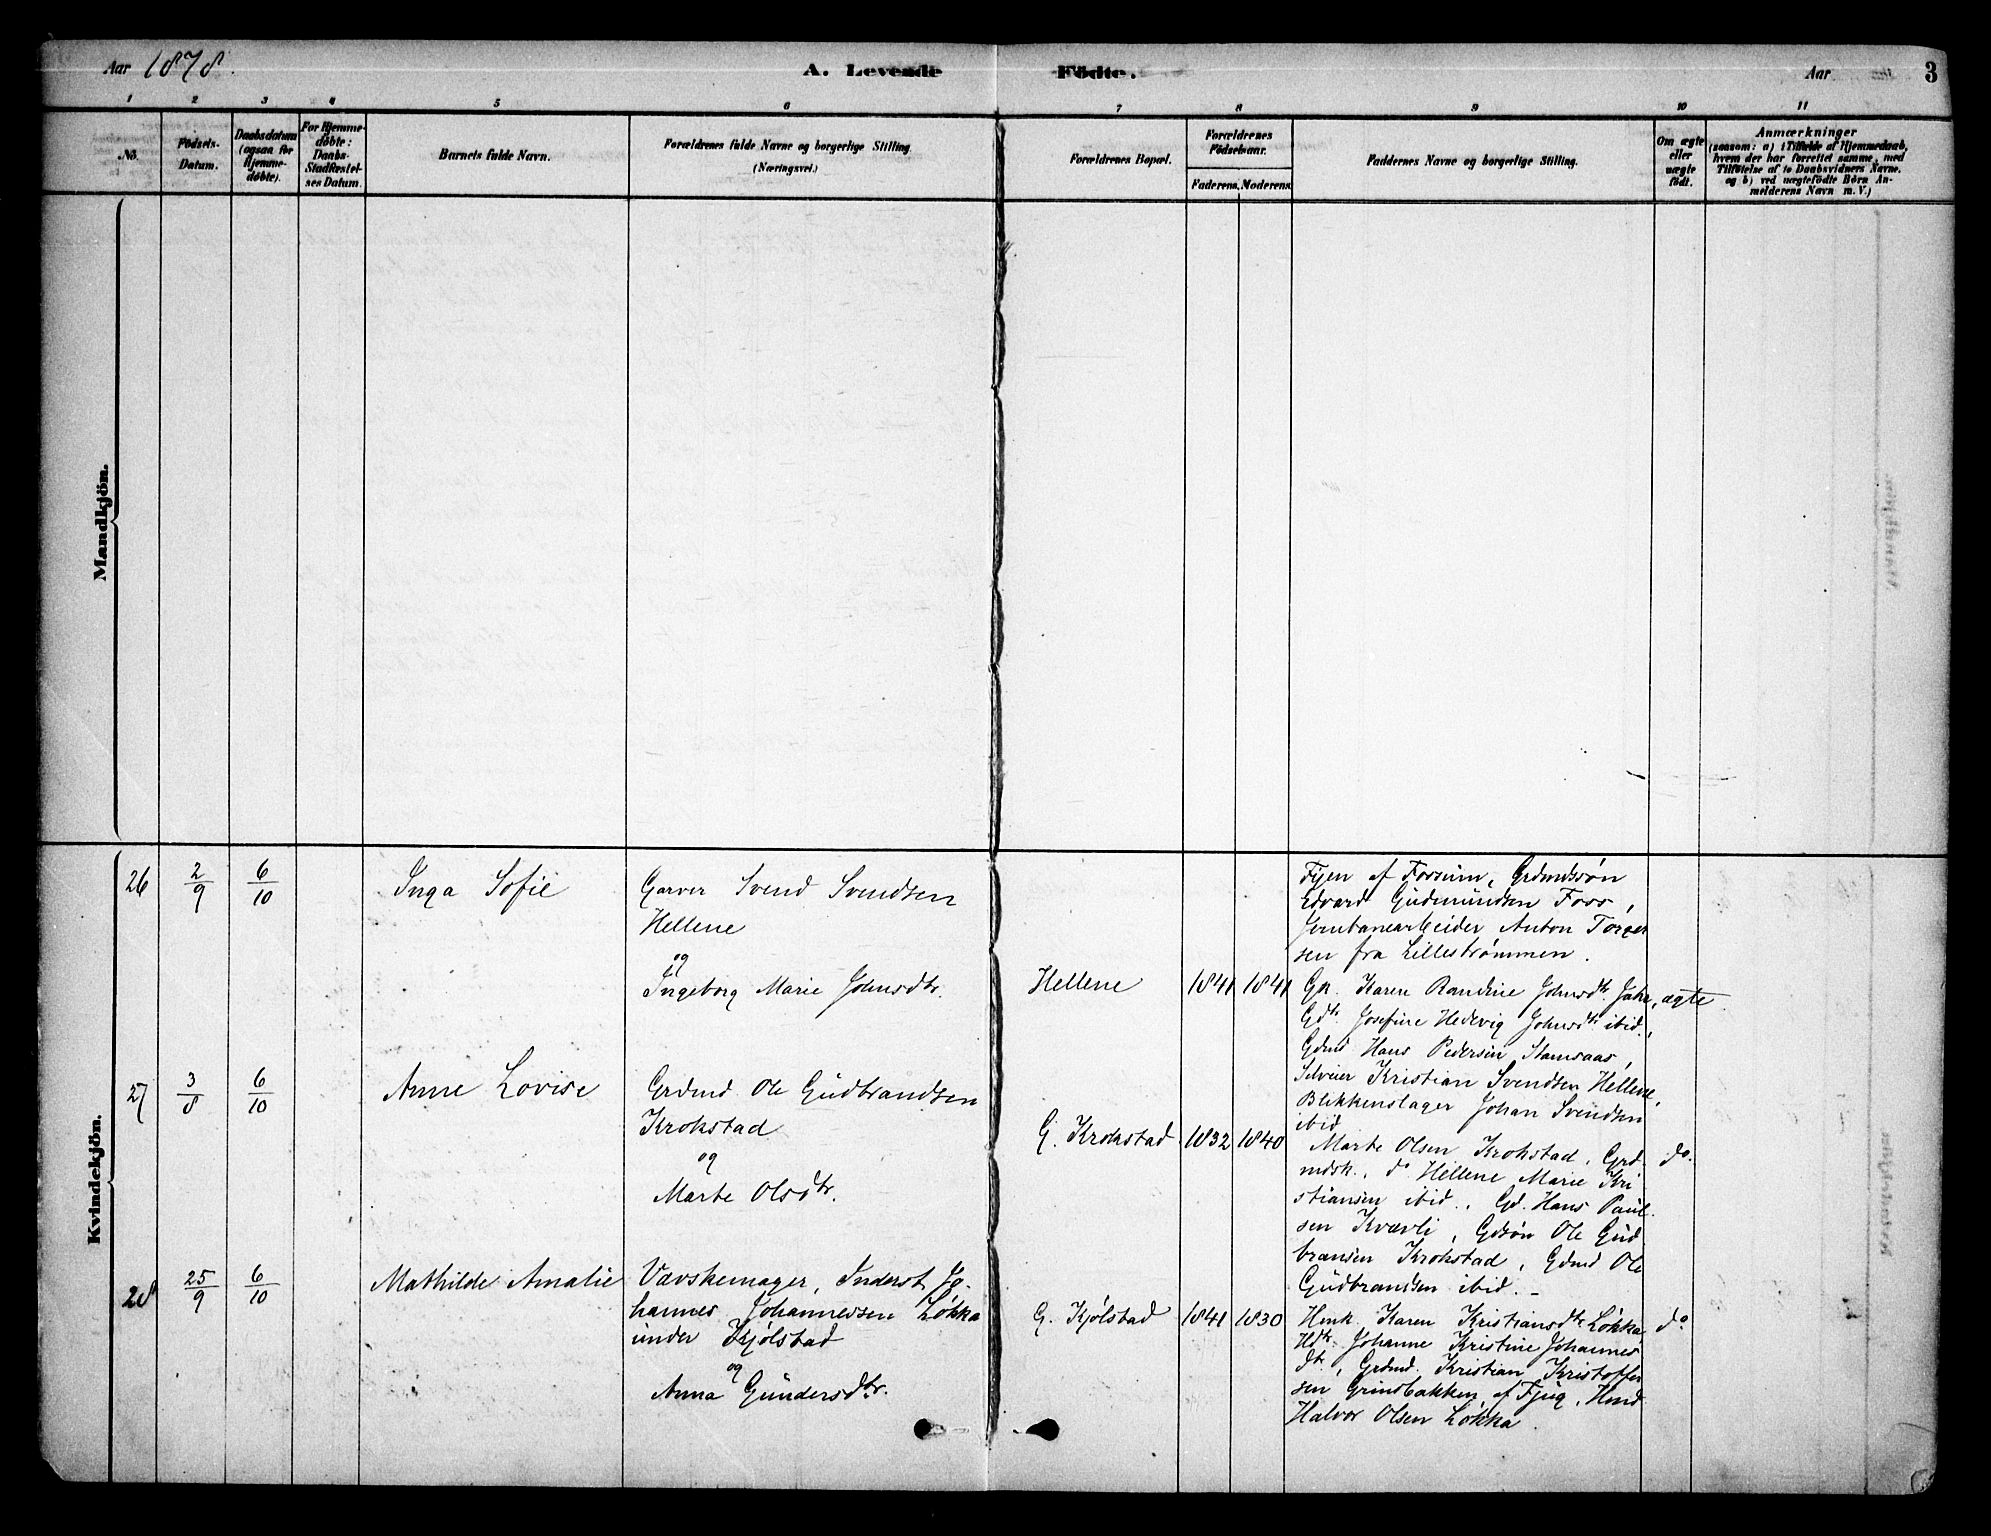 Aar 1878.
A. Levende Födte.
Aar
3
1 2 3 4 5 6 7 8 9 10 11
No.
Födsels-
Datum.
Daabsdatum
(ogsaa för
Hjemme-
döbte).
For Hjemme-
döbte:
Daabs-
Stadfæstel-
ses Datum.
Barnets fulde Navn.
Forældrenes fulde Navne og borgerlige Stilling.
(Næringsvei.)
Forældrenes Bopæl.
Forældrenes
Födselsaar.
Faderens. Moderens.
Faddernes Navne og borgerlige Stilling.
Om ægte
eller
uægte
födt.
Anmærkninger
(saasom: a) i Tilfælde af Hjemmedaab,
hvem der har forrettet samme, med
Tilföielse af to Daabsvidners Navne.
og b) ved uægtefödte Börn An-
melderens Navn m. V.)
Mandkjön.
Kvindekjön.
26
2/9
6/10
Inga Sofie
Garver Svend Svendsen
Hellene
og
Ingeborg Marie Johnsdtr.
Hellene
1841 1841
Fjen af Fossum, Grdmdssøn
Edvard Gudmundsen Foss,
Jernbanearbeider Anton Torger
sen fra Lillestrømmen.
Gk. Karen Randine Johnsdtr. ,
Gdtr. Josefine Hedevig Johnsdtr ibid.,
Gdmd Hans Pedersen ,
Kristian Svendsen Hellene,
Blikkenslager Johan Svendsen
ibid
ægte
27
3/8
6/10
Anne Lovise
Grdmd Ole Gudbrandsen
Krokstad
og
Marte Olsdtr.
G. Krokstad
1832 1840
Marte Olsen Krokstad, Grd-
mdsk., do Hellene Marie Kri
stiansen ibid., Gd. Hans Paul-
sen Kværli, Gdsøn Ole Gud
bransen Krokstad, Gdmd Ole
Gudbrandsen ibid. -
do.
28
25/9
6/10
Mathilde Amalie
Vævskemager, Inderst Jo-
hannes Johannessen Løkka
under Kjølstad
og
Anna Gundersdtr.
G. Kjølstad
1841 1830
Hmk. Karen Kristiansdtr Løkka,
Hdtr. Johanne Kristine Johannes
dtr., Grdmd. Kristian Kristoffer
sen Grinibakken af Fjug, Hmd
Halvor Olsen Løkka.
do